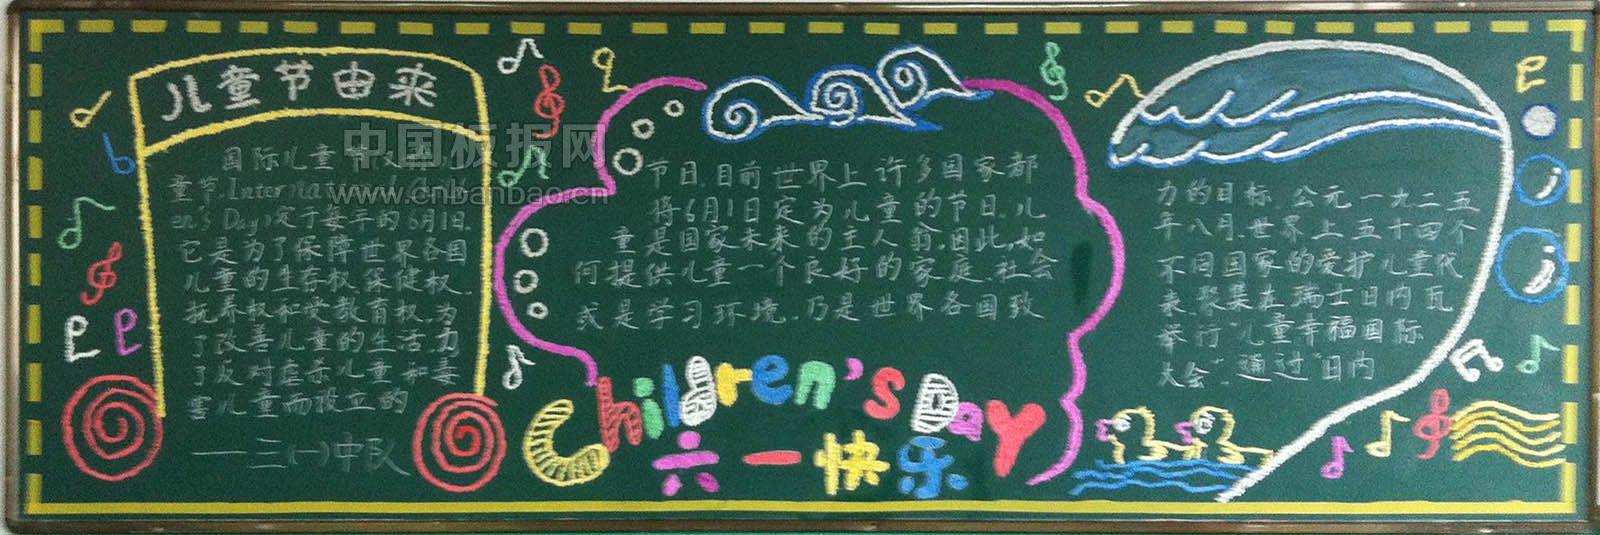 儿童节由来
国际儿童节又
童节,Internat
en's Day)定于每年的6月1日.
它是为了保障世界各国
儿童的生存权.保健权.
抚养权和受教育权,为
了改善儿童的生活,为
了反对虐杀儿童和毒
害儿童而设立的
——三(一)中队
节日.目前世界上许多国家都
将6月1日定为儿童的节日.儿
童是国家未来的主人翁,因此,如
何提供儿童一个良好的家庭.社会
或是学习环境.乃是世界各国致
Children's Day
六一快乐
力的目标.公元一九二五
年八月.世界上五十四个
不同国家的爱护儿童代
表.聚集在瑞士日内瓦
举行"儿童幸福国际
大会".通过"日内
中国板报网
www.cnbanbao.cn